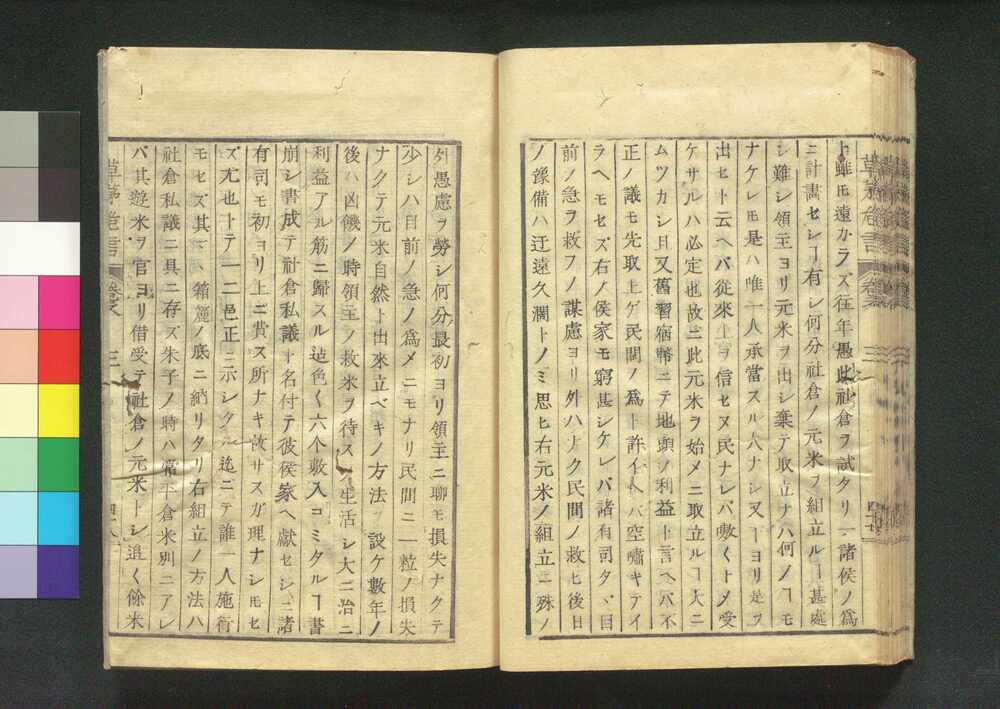 ト雖モ遠カラズ往年愚此社倉ヲ試タリ一諸侯ノ為
ニ計畫セシヿ有シ何分社倉ノ元米ヲ組立ルヿ甚處
シ難シ領主ヨリ元米ヲ出シ棄テ取立ナハ何ノヿモ
ナケレモ是ハ唯一人承當スル人ナシ又一ヨリ是ヲ
出セト云ヘバ従來上ヲ信セヌ民ナレバ嗷くトメ受
ケサルハ必定也故ニ此元米ヲ始メニ取立ルヿ大ニ
ムツカシ且又舊習宿幣ニテ地頭ノ利益ト言ヘバ不
正ノ議モ先取上ゲ民間ノ為ト許イヘバ空嘯キテイ
ラヘモセズ右ノ侯家モ窮甚シケレバ諸有司タヾ目
前ノ急ヲ救フノ謀慮ヨリ外ハナク民間ノ救ヒ後日
ノ豫備ハ迂遠久濶トノミ思ヒ右元米ノ組立ニ殊ノ
外愚慮ヲ勞シ何分最初ヨリ領主ニ聊モ損失ナクテ
少シハ目前ノ急ノ為メニモナリ民間ニ一粒ノ損失
ナクテ元米自然ト出來立ベキノ方法ヲ設ケ數年ノ
後ハ凶饑ノ時領主ノ救米ヲ待スシテ生活シ大ニ治ニ
利益アル筋ニ歸スル迠色く六个敷入コミタルヿ書
崩シ書成テ社倉私議ト名付テ彼侯家ヘ獻セシニ諸
有司モ初ヨリ上ニ賞ス所ナキ故サスガ理ナシモセ
ズ尤也トテ一二邑正ニ示シタル迠ニテ誰一人施行
モセズ其マヽ箱篋ノ底ニ納リタリ右組立ノ方法ハ
社倉私議ニ具ニ存ズ朱子ノ時ハ常平倉米別ニアレ
バ其遊米ヲ官ヨリ借受テ社倉ノ元米トシ追く餘米
草茅危言